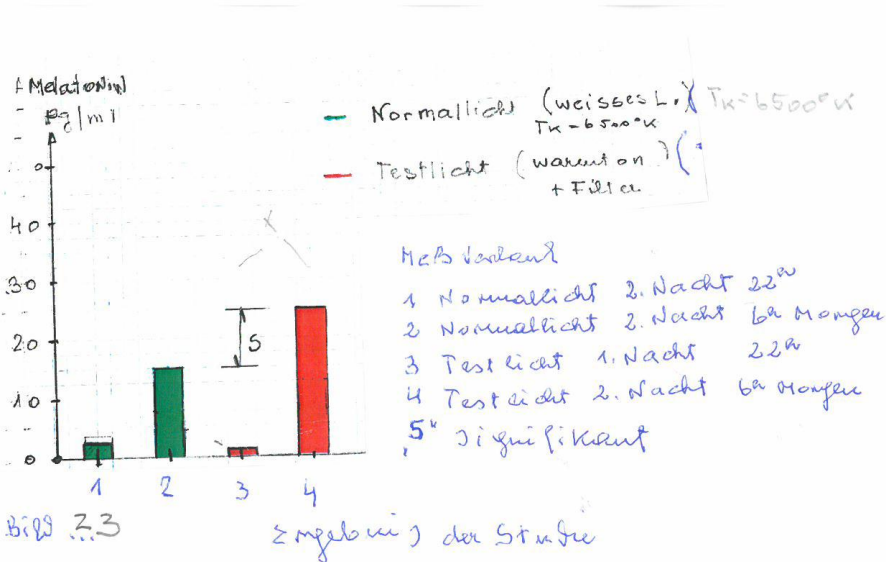 Melatonin
pg/ml
Normallicht (weisses L.) TK=6500°K
TK=6500°K
Testlicht (warmton)
+ Filter
0
40
30
20
10
0
S
1 2 3 4
Meß Verlauf
1 Normallicht 2. Nacht 22h
2 Normallicht 2. Nacht 6h Morgen
3 Testlicht 1. Nacht 22h
4 Testlicht 2. Nacht 6h Morgen
"S" Signifikant
Bild 23
Ergebnis der Studie